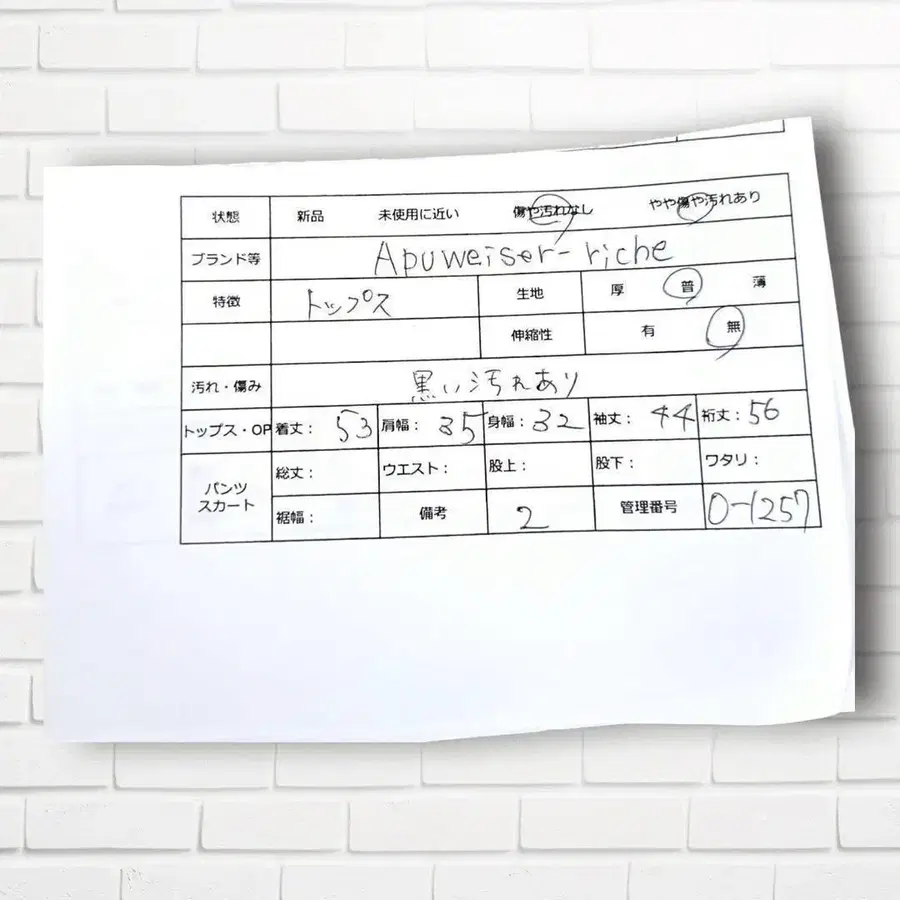 状態 新品 未使用に近い 傷や汚れなし やや傷や汚れあり
ブランド等 Apuweiser-riche
特徴 トップス 生地 厚 普 薄
伸縮性 有 無
汚れ・傷み 黒い汚れあり
トップス・OP 着丈： 53 肩幅： 35 身幅： 32 袖丈： 44 裄丈： 56
パンツ
スカート
総丈： ウエスト： 股上： 股下： ワタリ：
裾幅： 備考 2 管理番号 0-1257